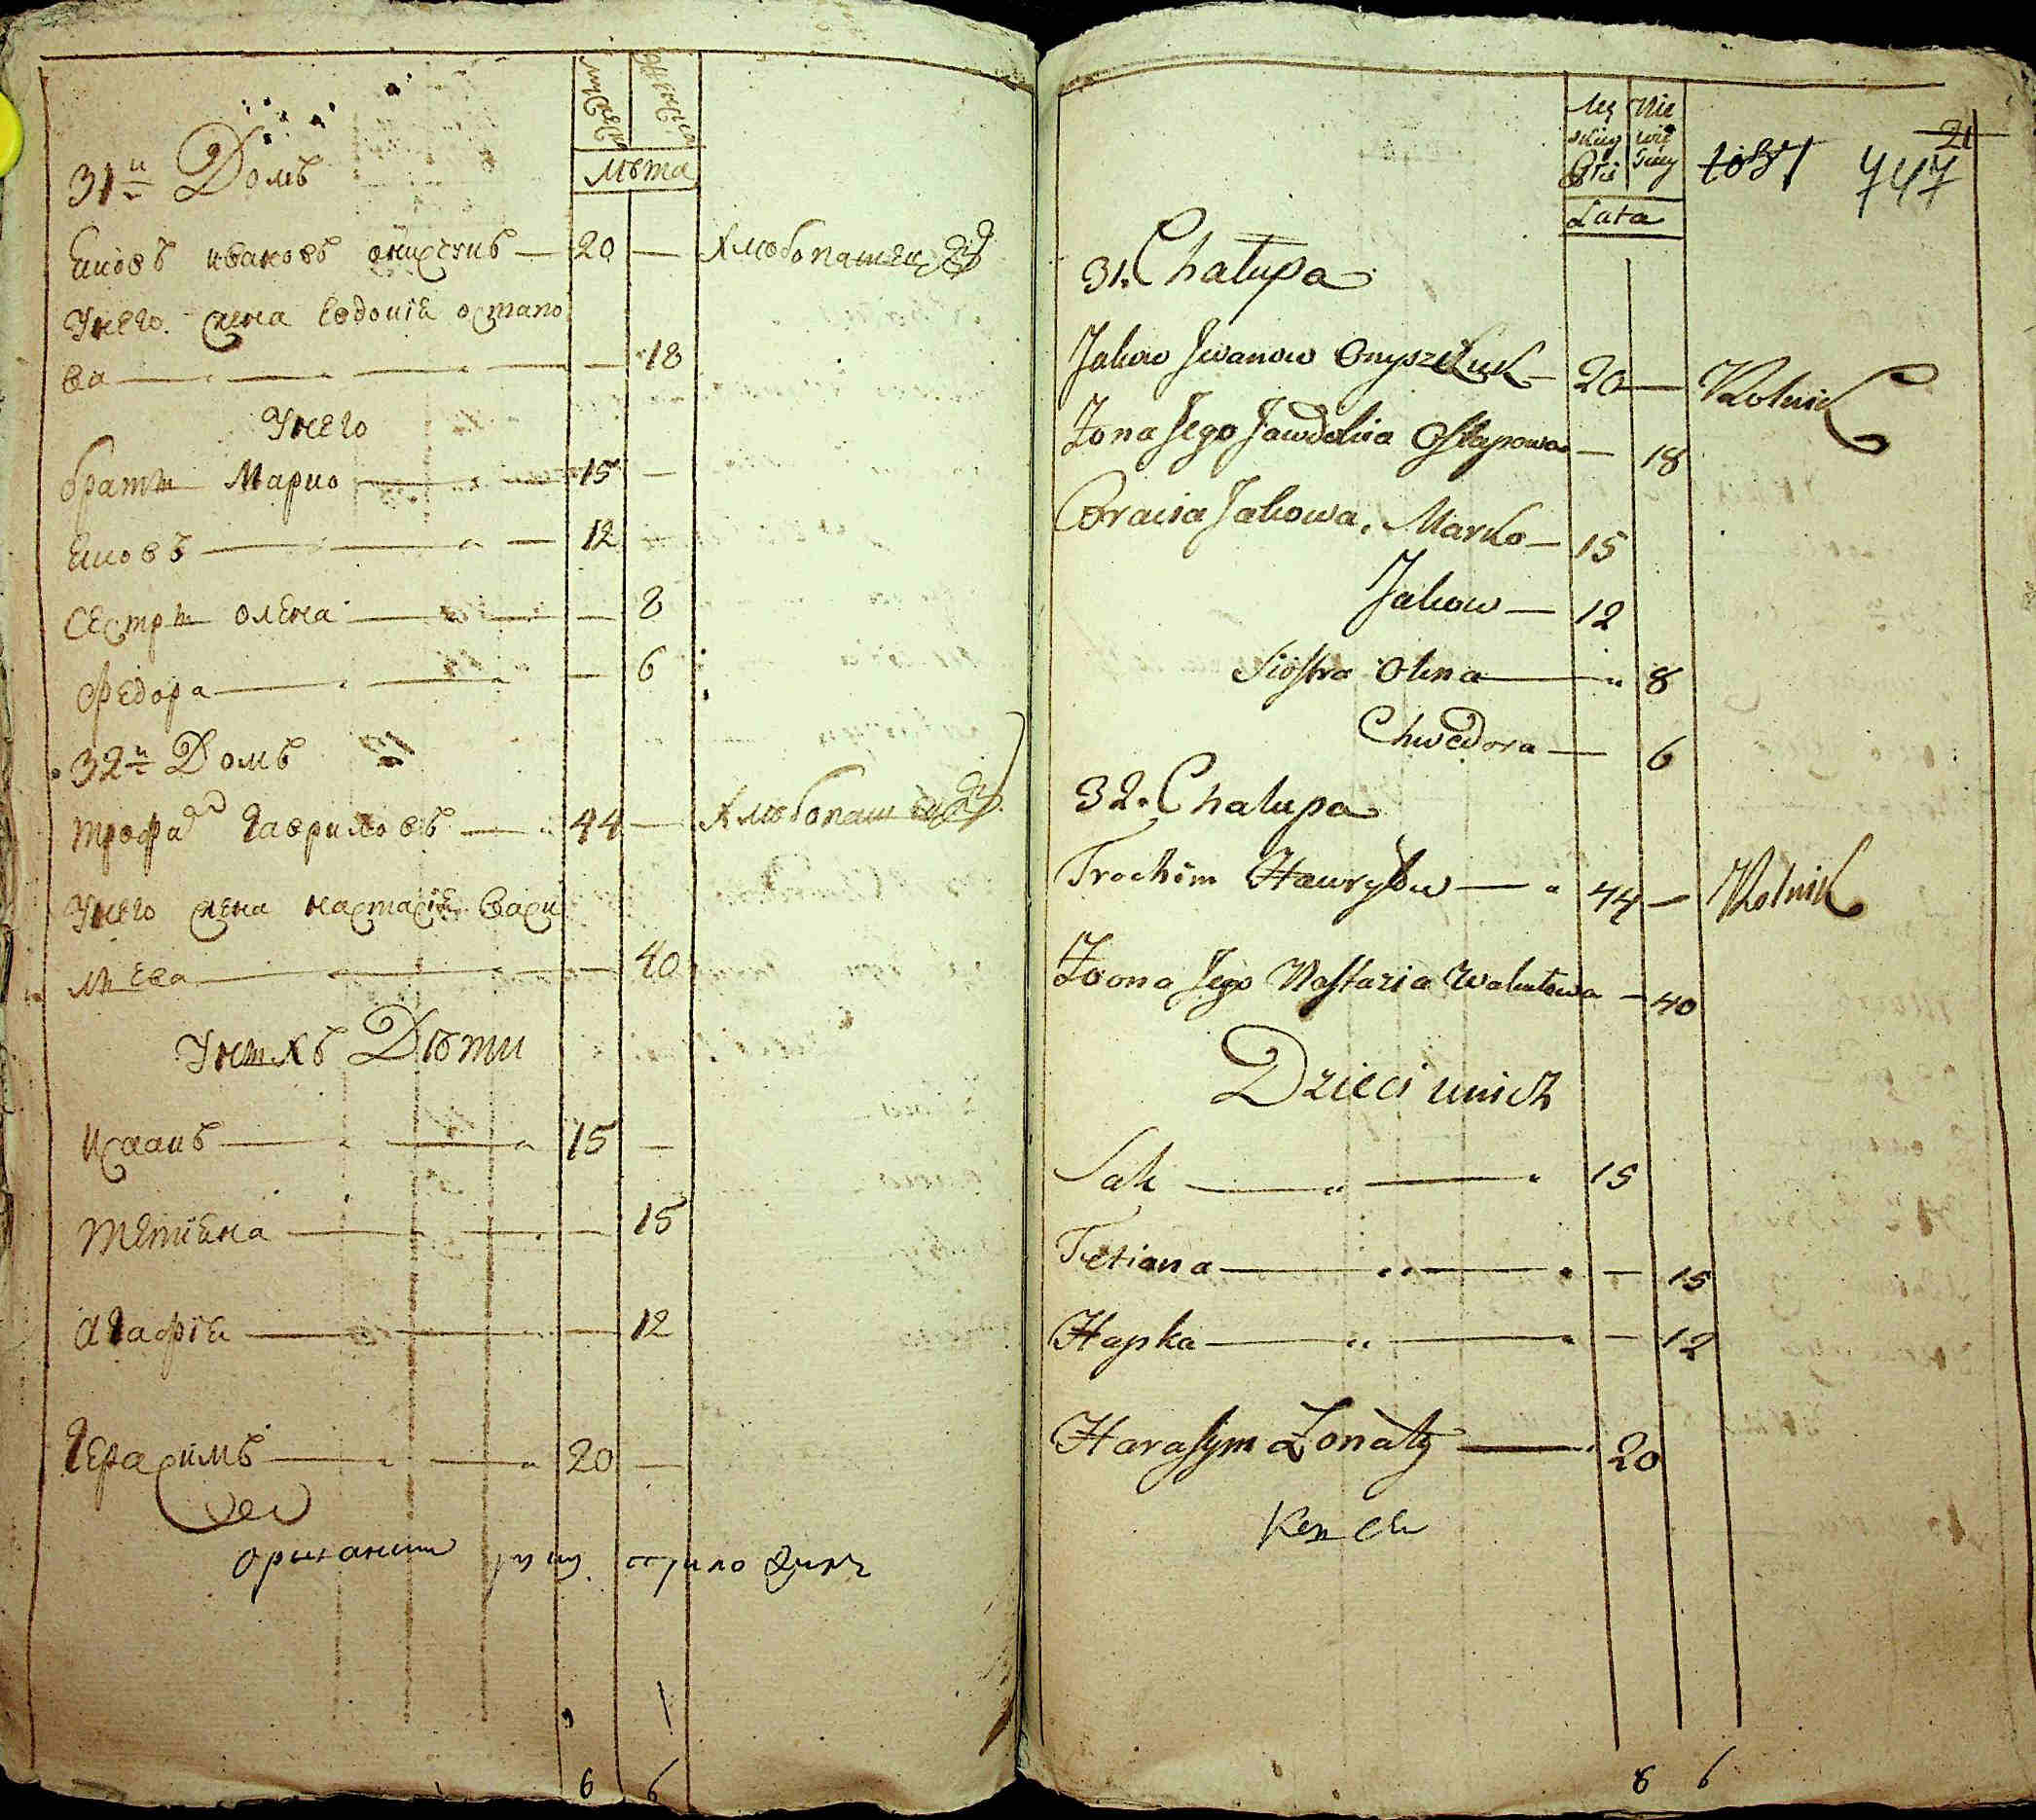 лѣта
31й Домъ
Яковъ Ивановъ Онищукъ — 20 — Хлѣбопашецъ
У него жена Евдокія Остапо
ва — — 18
У него
братъ Марко — 15 —
Яковъ — 12
сестра Олена — — 8
Федора — — 6
32й Домъ
Трофим Гавриловъ — 44 — Хлѣбопашецъ
У него жена Настасія Васи
лѣева — — 40
У нихъ Дѣти
Исаакъ — 15 —
Тетіяна — — 15
Агафія — — 12
Герасимъ — 20 —
6 6
Męz Nie
Płci wie
Lata
21
1031 747
31. Chałupa
Jakow Iwanow Onyszczuk — 20 — Rolnik
Zona Jego Jawdokia Ostapowa — 18
Bracia Jakowa, Marko — 15
Jakow — 12
Siostra Olena — 8
Chwedora — 6
32. Chalupa
Trochim Hawryłow — 44 — Rolnik
Zona Jego Nastazia — 40
Dzieci unich
Sak — 15
Tetiana — — 15
Hapka — — 12
Harasym Zonaty — 20
8 6